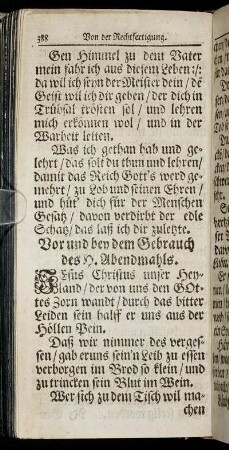 388 Von der Rechtfertigung.
Gen Himmel zu dem Vater
mein fahr ich aus diesem Leben :/:
da wil ich seyn der Meister dein / dē
Geist wil ich dir geben / der dich in
Trübsal trösten sol / und lehren
mich erkennen wol / und in der
Warheit leiten.
Was ich gethan hab und ge-
lehrt / das solt du thun und lehren /
damit das Reich Gott's werd ge-
mehrt / zu Lob und seinen Ehren /
und hüt' dich für der Menschen
Gesätz / davon verdirbt der edle
Schatz / das laß ich dir zuletzte.
Vor und bey dem Gebrauch
des H. Abendmahls.
JEsus Christus unser Hey-
land / der von uns den GOt-
tes Zorn wandt / durch das bitter
Leiden sein halff er uns aus der
Höllen Pein.
Daß wir nimmer des verges-
sen / gab er uns sein'n Leib zu essen
verborgen im Brod so klein / und
zu trincken sein Blut im Wein.
Wer sich zu dem Tisch wil ma-
chen